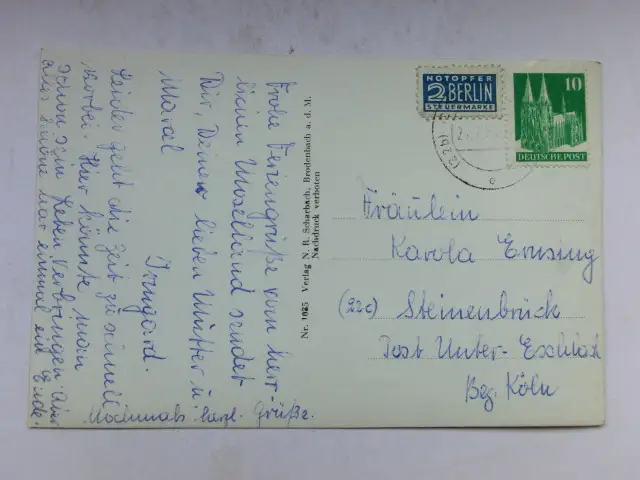 Frohe Feriengrüße vom herr-
lichen Moselland sendet
Dir, Deiner lieben Mutter u.
Maral
Irmgard.
Leider geht die Zeit zu schnell
vorbei. Hier könnte man
schon sein Leben verbringen. Aber
alles Schöne hat einmal ein Ende.
Nochmals herzl. Grüße.
Nr. 1085 Verlag N. R. Scharbach, Brodenbach a. d. M.
Nachdruck verboten
NOTOPFER
2 BERLIN
STEUERMARKE
10
DEUTSCHE POST
(22b)
Fräulein
Karola Ernsing
(22c) Steinenbrück
Post Unter-Eschbach
Bez. Köln